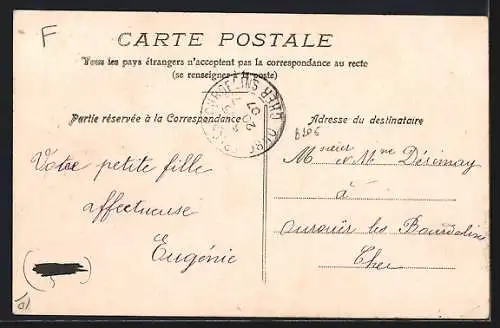 F
CARTE POSTALE
Tous les pays étrangers n'acceptent pas la correspondance au recto
(se renseigner à la poste)
Partie réservée à la Correspondance
Adresse du destinataire
Votre petite fille
affectueuse
Eugénie
Monsieur et Mme
à
les
Cher
BOURGES
CHER